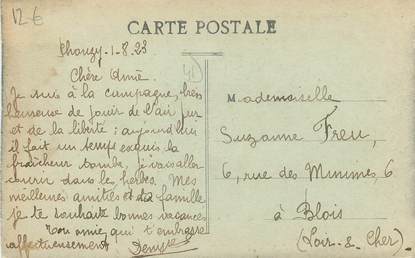 12 €
CARTE POSTALE
Chouzy-1-8.23
41
Chère Amie.
Je suis à la campagne, très
heureuse de jouir de l'air pur
et de la liberté : aujourd'hui
il fait un temps exquis la
fraîcheur tombe, je vais aller
courir dans les herbes. Mes
meilleures amitiés et de famille
je te souhaite bonnes vacances
Ton amie qui t'embrasse
affectueusement
Mademoiselle
Suzanne Freu,
6, rue des Minimes, 6
à Blois
(Loir-&-Cher).